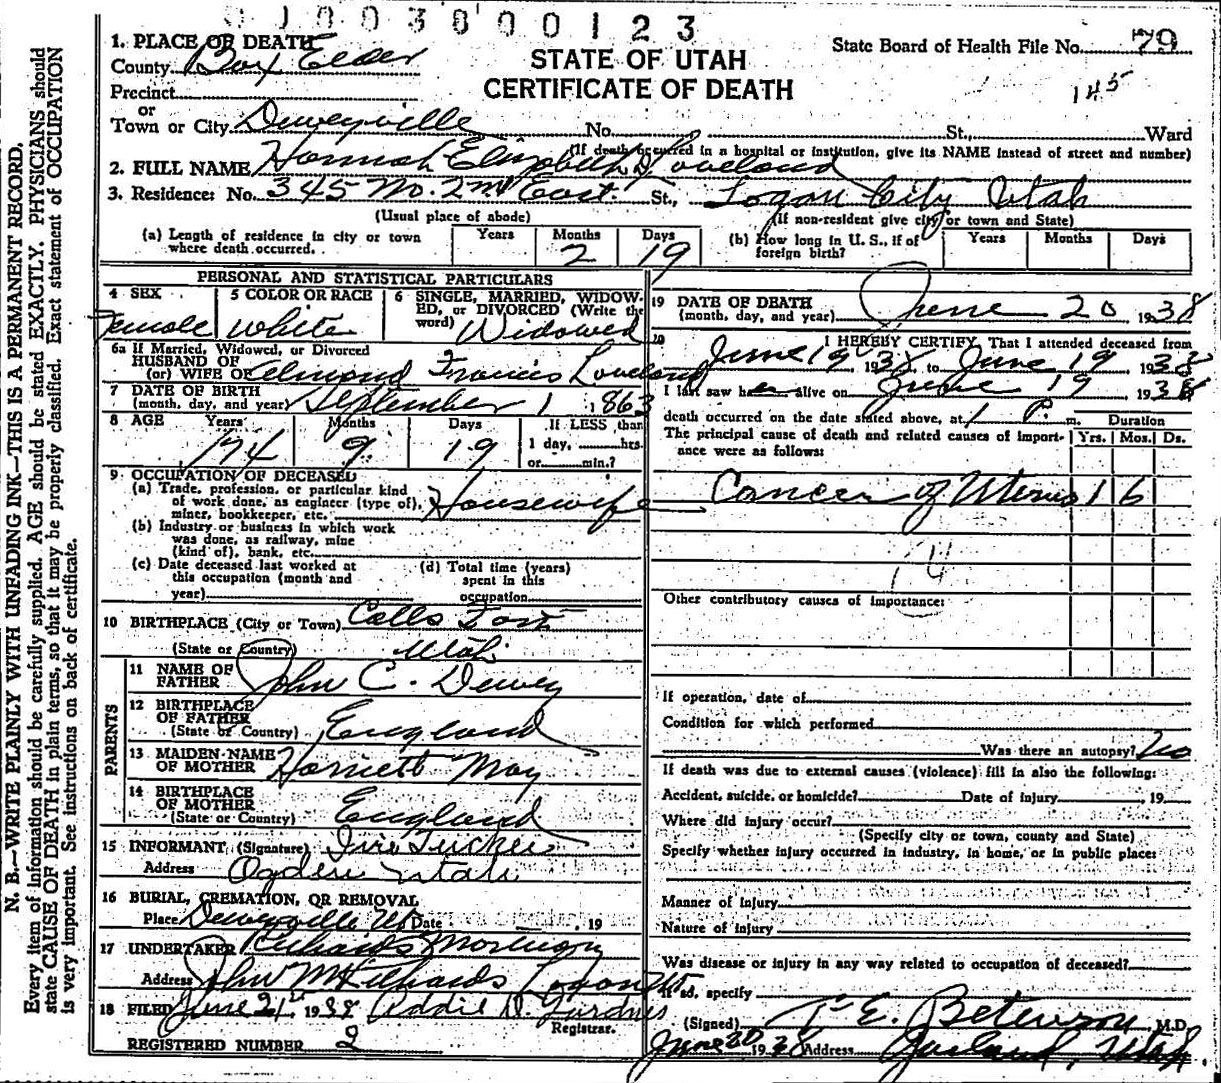 01003800123
1. PLACE OF DEATH
County Box Elder
STATE OF UTAH
CERTIFICATE OF DEATH
State Board of Health File No. 79
145
Precinct
or
Town or City Deweyville No. St., Ward
(If death occurred in a hospital or institution, give its NAME instead of street and number)
2. FULL NAME Hannah Elizabeth D. Loveland
3. Residence: No. 345 No. 2nd East St., Logan City Utah
(Usual place of abode) (If non-resident give city or town and State)
(a) Length of residence in city or town where death occurred. Years Months 2 Days 19
(b) How long in U. S., if of foreign birth? Years Months Days
PERSONAL AND STATISTICAL PARTICULARS
4 SEX Female
5 COLOR OR RACE White
6 SINGLE, MARRIED, WIDOWED, or DIVORCED (Write the word) Widowed
6a If Married, Widowed, or Divorced
HUSBAND OF
(or) WIFE OF Almond Francis Loveland
7 DATE OF BIRTH
(month, day, and year) September 1 1863
8 AGE Years 74 Months 9 Days 19 If LESS than
1 day, hrs.
or min.?
9 OCCUPATION OF DECEASED
(a) Trade, profession, or particular kind
of work done, as engineer (type of),
miner, bookkeeper, etc. Housewife
(b) Industry or business in which work
was done, as railway, mine
(kind of), bank, etc.
(c) Date deceased last worked at
this occupation (month and
year)
(d) Total time (years)
spent in this
occupation
10 BIRTHPLACE (City or Town) Calls Fort
(State or Country) Utah
PARENTS
11 NAME OF
FATHER John C. Dewey
12 BIRTHPLACE
OF FATHER
(State or Country) England
13 MAIDEN NAME
OF MOTHER Harriett May
14 BIRTHPLACE
OF MOTHER
(State or Country) England
15 INFORMANT (Signature) Tucker
Address Ogden Utah
16 BURIAL, CREMATION, OR REMOVAL
Place Deweyville Ut Date 19
17 UNDERTAKER Richards Mortuary
Address John M Richards Logan Ut
18 FILED June 21st 1938 Addie D. Gardner
Registrar.
REGISTERED NUMBER 2
19 DATE OF DEATH
(month, day, and year) June 20 1938
20 I HEREBY CERTIFY, That I attended deceased from
June 19 1938, to June 19 1938
I last saw her alive on June 19 1938
death occurred on the date stated above, at 1 P. m. Duration
The principal cause of death and related causes of importance were as follows: Yrs. Mos. Ds.
Cancer of Uterus 1 6
Other contributory causes of importance:
If operation, date of
Condition for which performed
Was there an autopsy? No
If death was due to external causes (violence) fill in also the following:
Accident, suicide, or homicide? Date of injury , 19
Where did injury occur?
(Specify city or town, county and State)
Specify whether injury occurred in industry, in home, or in public place:
Manner of injury
Nature of injury
Was disease or injury in any way related to occupation of deceased?
If so, specify
(Signed) M.D.
June 20 1938 Address Garland, Utah
N. B.—WRITE PLAINLY WITH UNFADING INK—THIS IS A PERMANENT RECORD.
Every item of information should be carefully supplied. AGE should be stated EXACTLY. PHYSICIANS should
state CAUSE OF DEATH in plain terms, so that it may be properly classified. Exact statement of OCCUPATION
is very important. See instructions on back of certificate.